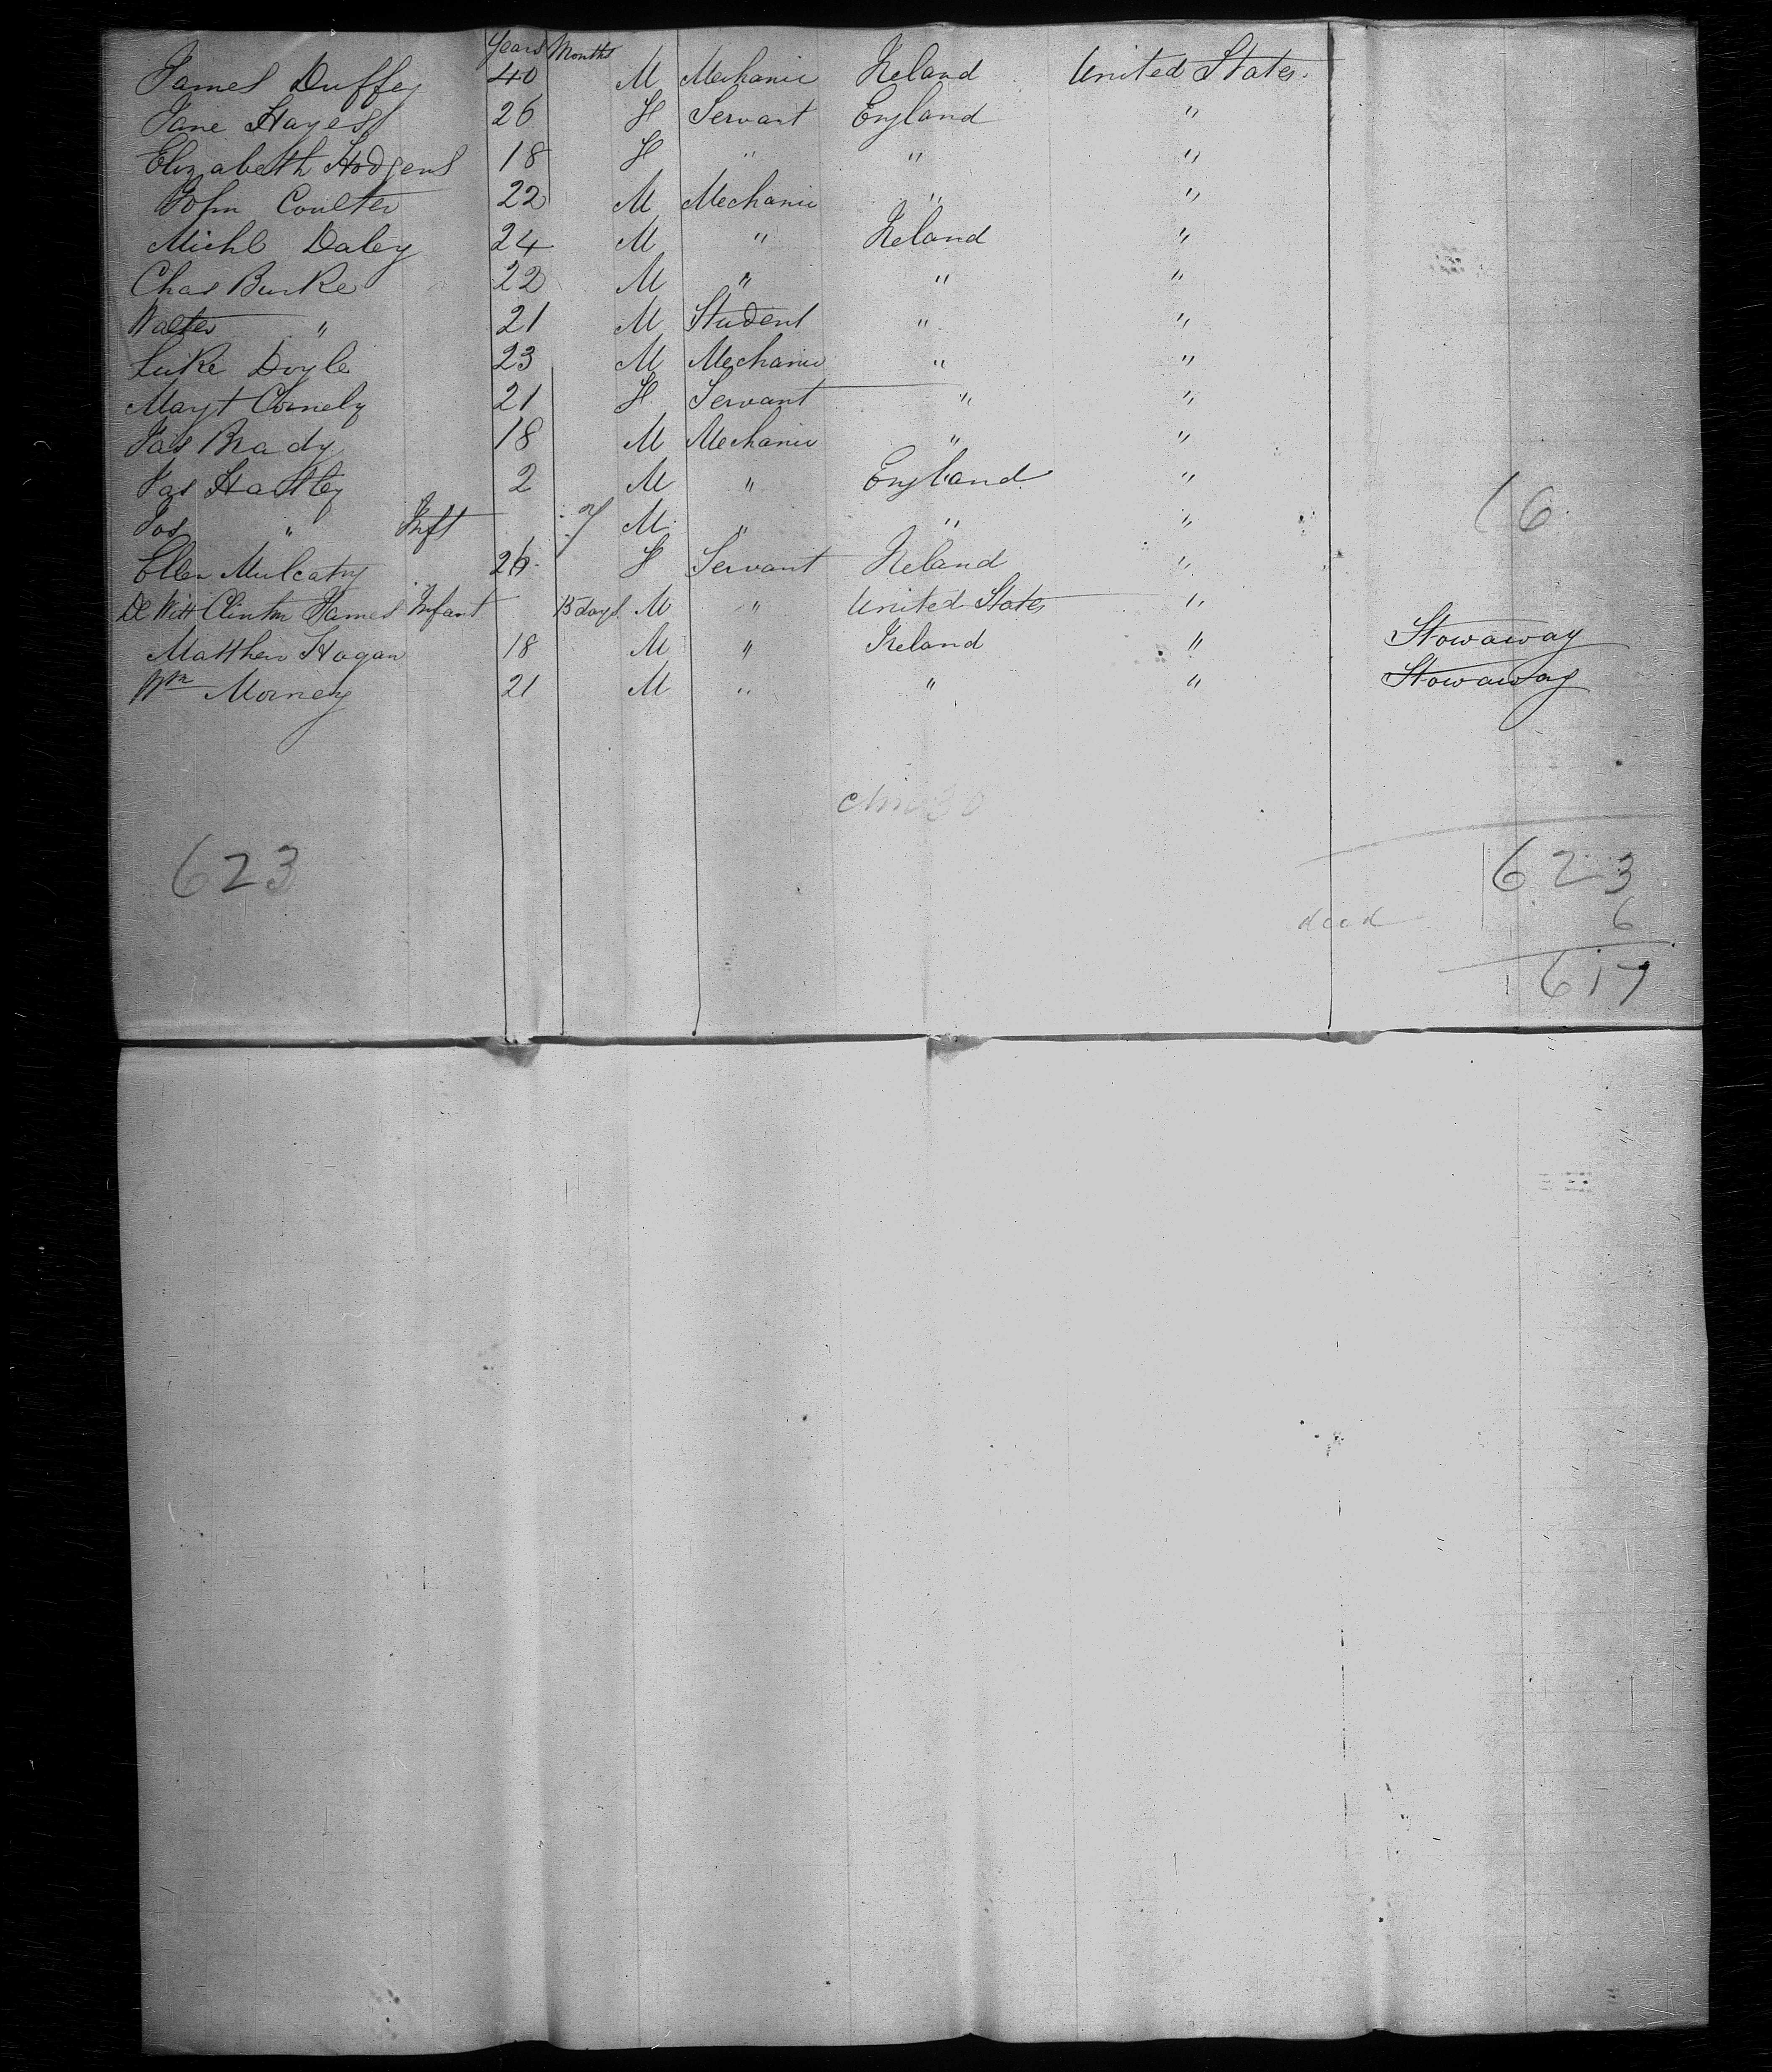 Years Months
James Duffey 40 M Mechanic Ireland United States.
Jane Hayes 26 F Servant England "
Elizabeth Hodgens 18 F " " "
John Coulter 22 M Mechanic " "
Michl Daley 24 M " Ireland "
Chas Burke 22 M " " "
Walter " 21 M Student " "
Luke Doyle 23 M Mechanic " "
Mart Connely 21 F Servant " "
Jas Brady 18 M Mechanic " "
Jas Hartley 2 M " England "
Jos " Inft 7 M " " "
16
Ellen Mulcahy 26 F Servant Ireland "
De Witt Clinton James Infant 15 days M " United States "
Matthew Hogan 18 M " Ireland " Stowaway
Wm Morney 21 M " " " Stowaway
623
623
dead 6
617